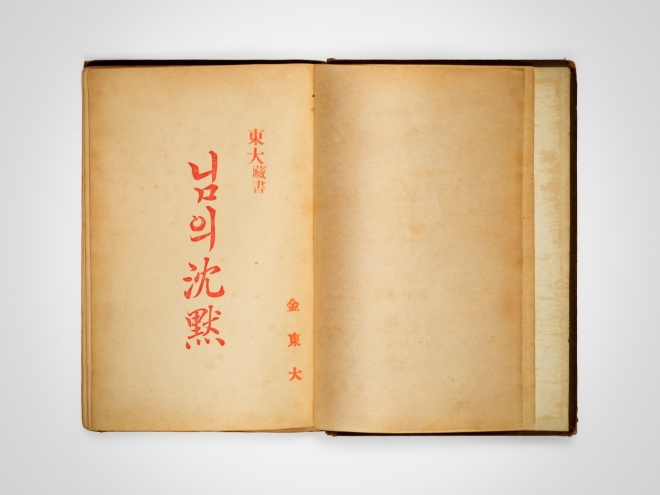 東大藏書
님의 沈默
金東大